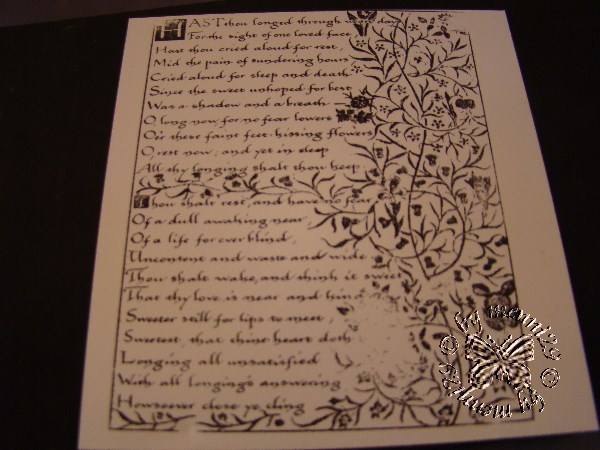 HAST thou longed through weary days
For the sight of one loved face,
Hast thou cried aloud for rest,
Mid the pain of sundering hours
Cried aloud for sleep and death
Since the sweet unhoped for best
Was a shadow and a breath —
O, long now, for no fear lowers
O'er these faint feet-kissing flowers
O, rest now; and yet in sleep
All thy longing shalt thou keep
Thou shalt rest, and have no fear
Of a dull awaking near,
Of a life for ever blind,
Uncontent and waste and wide
Thou shalt wake, and think it sweet
That thy love is near and kind
Sweeter still for lips to meet;
Sweetest, that thine heart doth
Longing all unsatisfied
With all longing's answering
Howsoever close ye cling
© by menni29 © by menni29